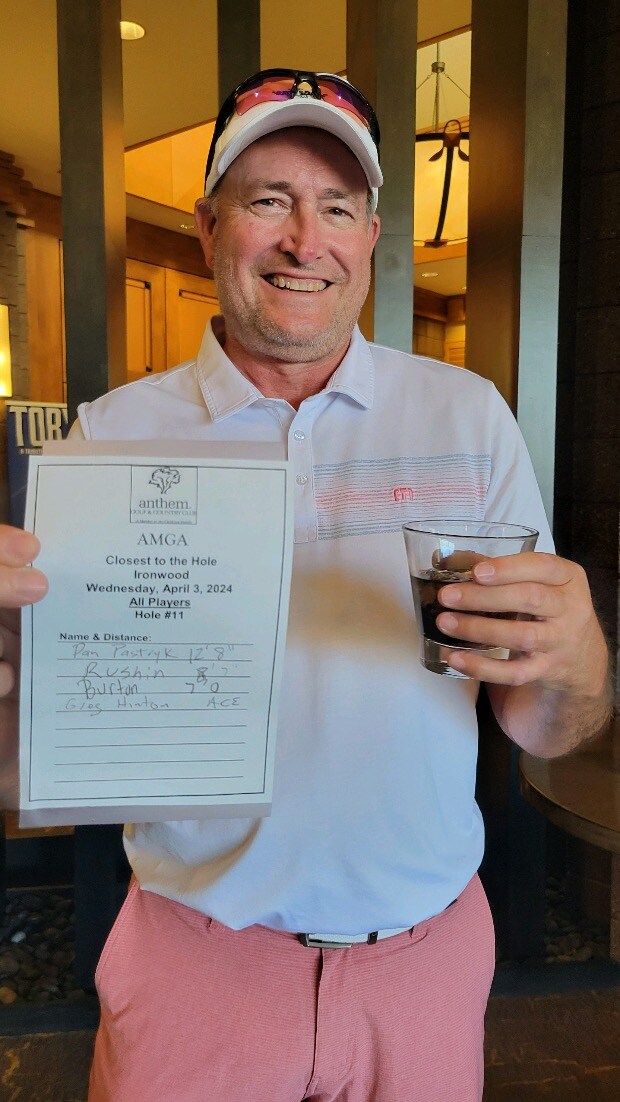 TOBY
anthem.
GOLF & COUNTRY CLUB
AMGA
Closest to the Hole
Ironwood
Wednesday, April 3, 2024
All Players
Hole #11
Name & Distance:
Dan Pastryk 12' 8"
Rushin 8' 7"
Burton 7 0
Greg Hinton ACE